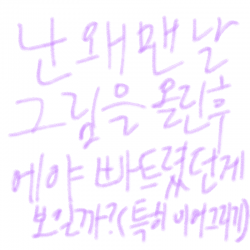 난 왜 맨날
그림을 올린 후
에야 빠트렸던게
보일까?(특히 이어그리기)